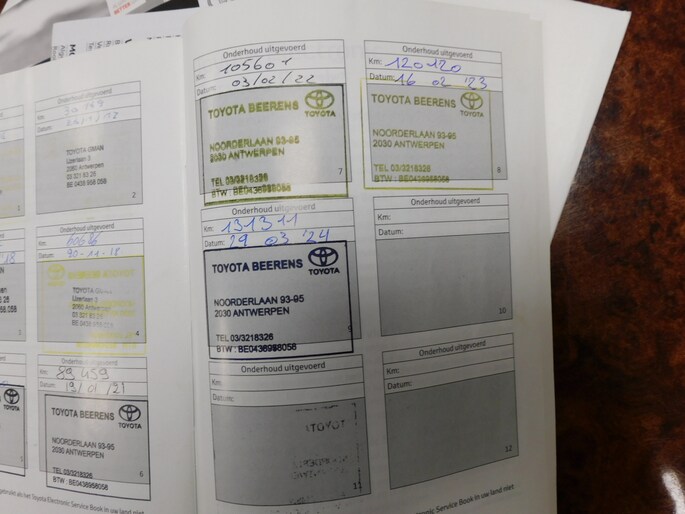 Onderhoud uitgevoerd
Km:
Datum:
TOYOTA
IJzerlaan 3
2060 Antwerpen
03 321 83 26
BE 0436 958 058
2
Onderhoud uitgevoerd
Km:
Datum: 30-11-18
TOYOTA
IJzerlaan 3
2060 Antwerpen
03 321 83 26
BE 0436 958 058
4
Onderhoud uitgevoerd
Km: 89 459
Datum: 19/01/21
TOYOTA BEERENS
TOYOTA
NOORDERLAAN 93-95
2030 ANTWERPEN
TEL 03/3218326
BTW : BE0436958058
6
Onderhoud uitgevoerd
Km: 105601
Datum: 03/02/22
TOYOTA BEERENS
TOYOTA
NOORDERLAAN 93-95
2030 ANTWERPEN
TEL 03/3218326
BTW : BE0436958058
7
Onderhoud uitgevoerd
Km: 120120
Datum: 16 02 '23
TOYOTA BEERENS
TOYOTA
NOORDERLAAN 93-95
2030 ANTWERPEN
TEL 03/3218326
BTW : BE0436958058
8
Onderhoud uitgevoerd
Km: 131311
Datum: 29 03 '24
TOYOTA BEERENS
TOYOTA
NOORDERLAAN 93-95
2030 ANTWERPEN
TEL 03/3218326
BTW : BE0436958058
Onderhoud uitgevoerd
Km:
Datum:
10
Onderhoud uitgevoerd
Km:
Datum:
11
Onderhoud uitgevoerd
Km:
Datum:
12
als het Toyota Electronic Service Book in uw land niet
Electronic Service Book in uw land niet